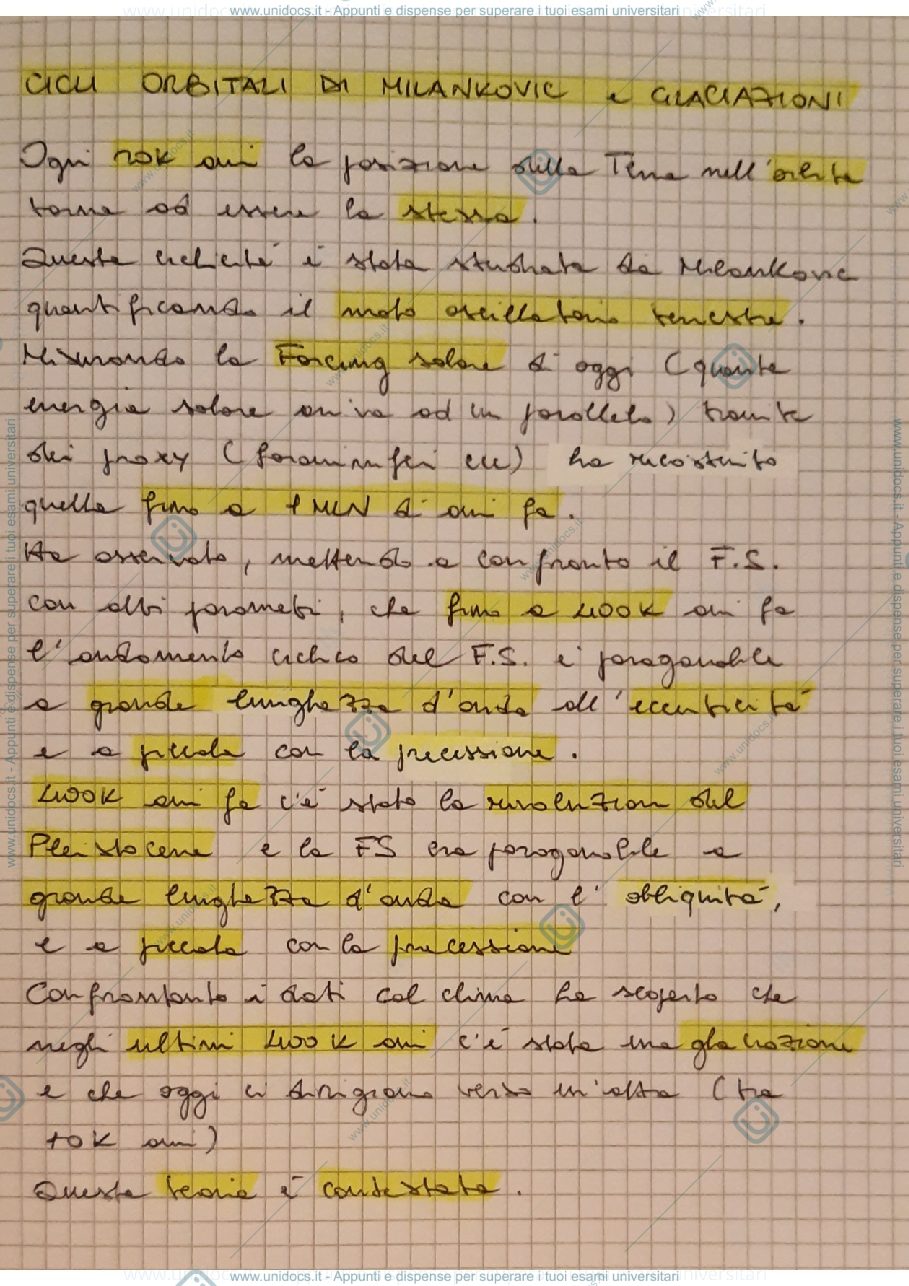 www.unidocs.it - Appunti e dispense per superare i tuoi esami universitari
CICLI ORBITALI DI MILANKOVIC e GLACIAZIONI
Ogni 20K anni la posizione della Terra nell'orbita
torna ad essere la stessa.
Questa ciclicità è stata studiata da Milankovic
quantificando il moto oscillatorio terrestre.
Misurando la Forcing solare di oggi (quanta
energia solare arriva ad un parallelo) tramite
dei proxy (foraminiferi ecc) ha ricostruito
quella fino a 1 MLN di anni fa.
Ha osservato, mettendo a confronto il F.S.
con altri parametri, che fino a 400K anni fa
l'andamento ciclico del F.S. è paragonabile
a grande lunghezza d'onda all'eccentricità
e a piccola con la precessione.
400K anni fa c'è stata la rivoluzione del
Pleistocene e la FS era paragonabile a
grande lunghezza d'onda con l'obliquità,
e a piccola con la precessione
Confrontanto i dati col clima ha scoperto che
negli ultimi 400K anni c'è stata una glaciazione
e che oggi ci dirigiamo verso un'altra (tra
10K anni)
Questa teoria è contestata.
www.unidocs.it - Appunti e dispense per superare i tuoi esami universitari